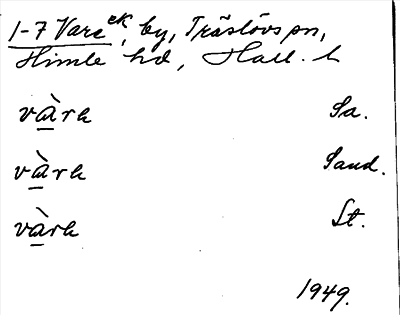 1-7 Vare ek, by, Träslövs pn,
Himle hd, Hall. l.
và̱ra Sa.
và̱ra Sand.
và̱ra St.
1949.